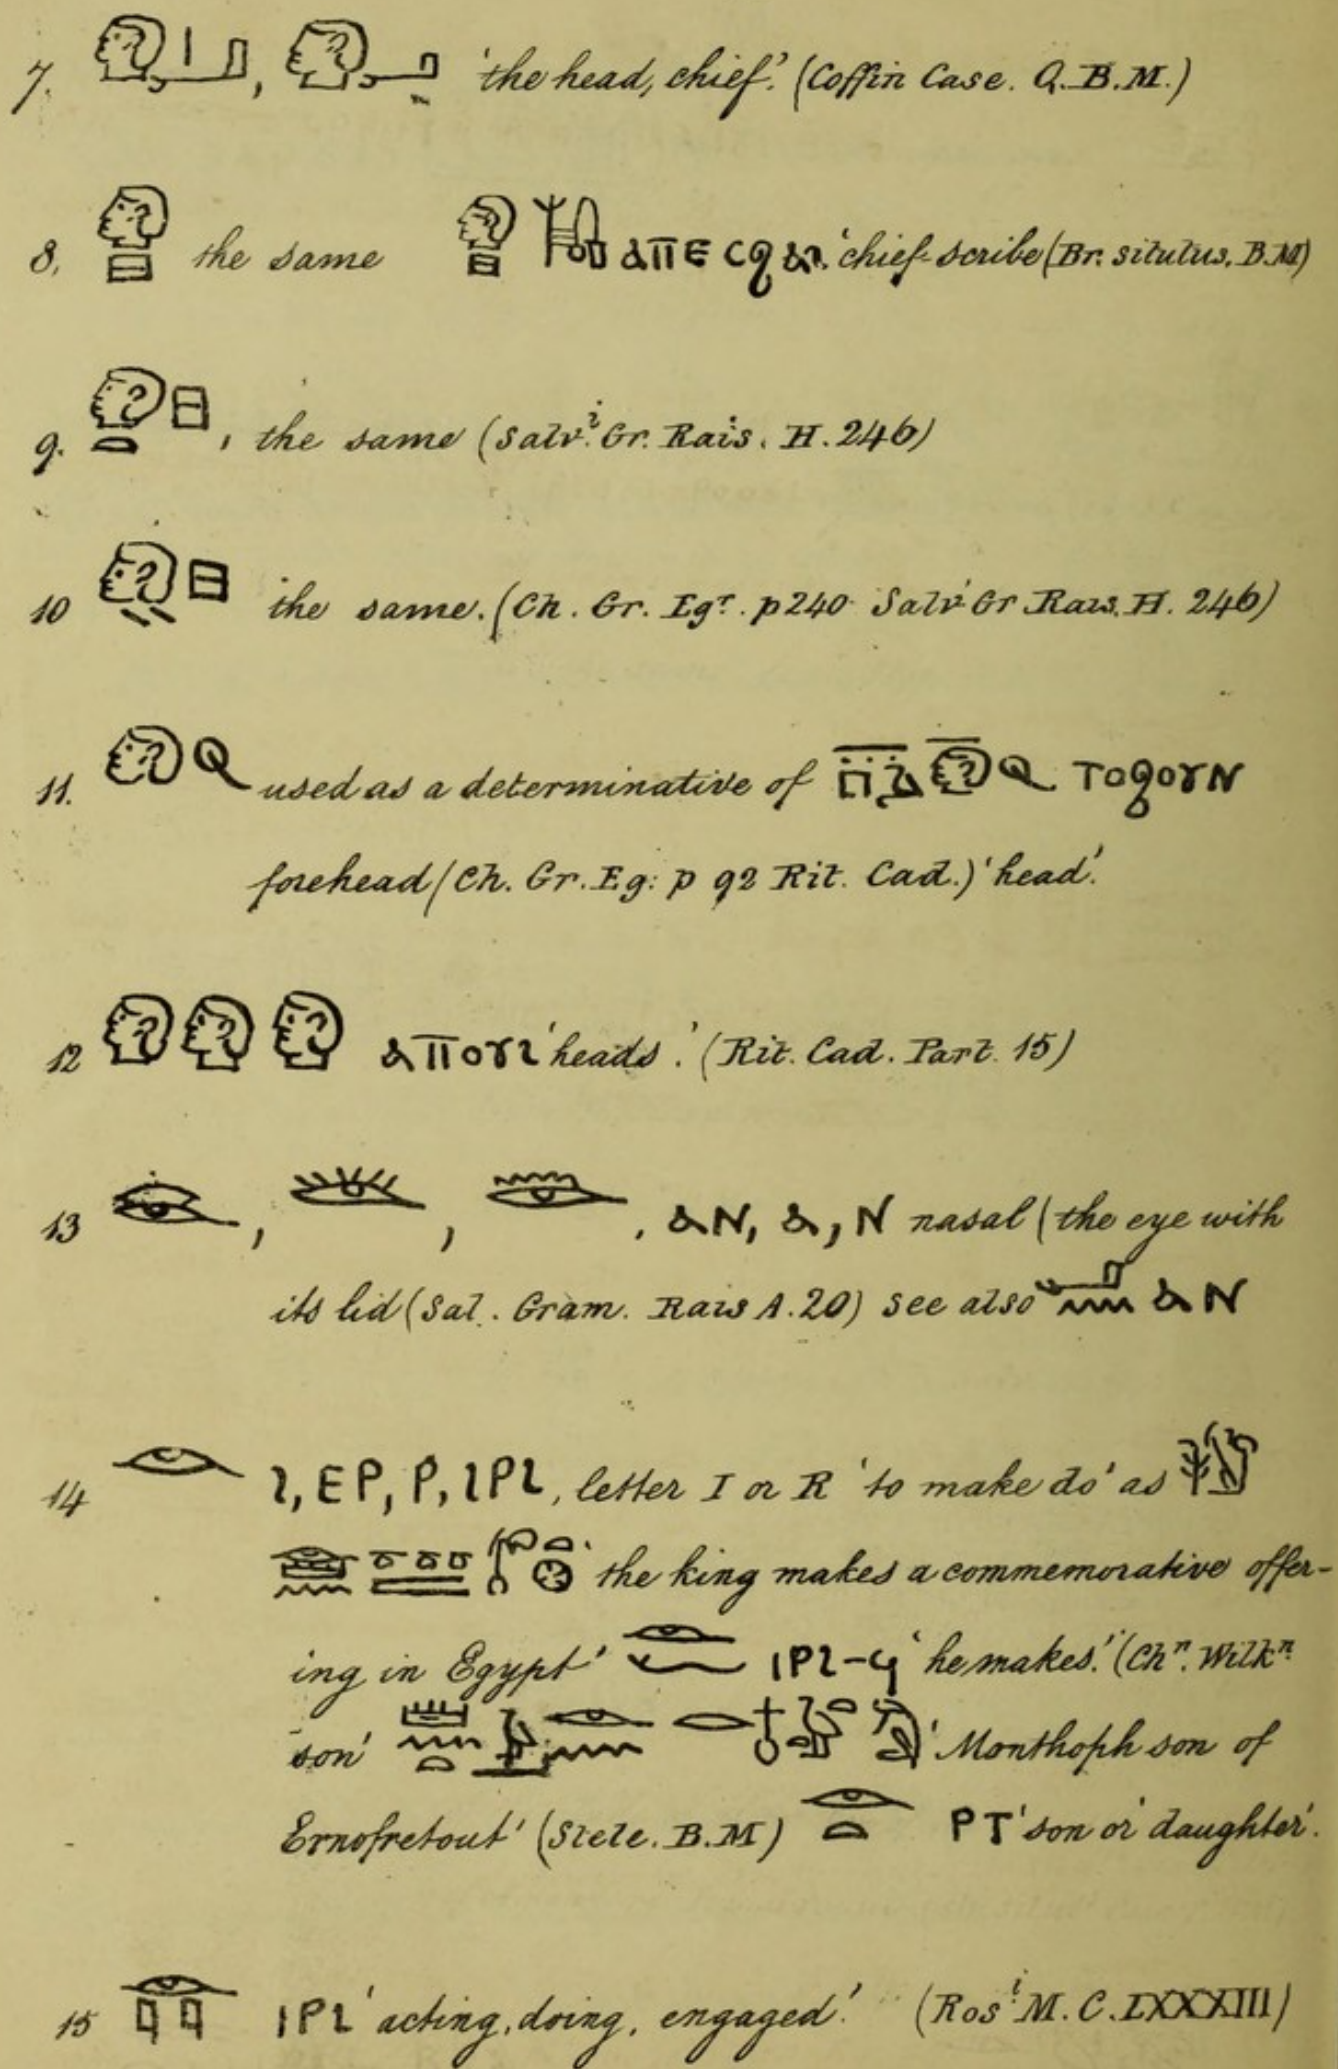 7. , 'the head, chief.' (Coffin Case. Q. B. M.)
8, the same ⲁⲡⲉ ⲥϩⲁⲓ. 'chief-scribe (Br. situtus, B.M)
9. , the same (Salvⁱ. Gr. Rais. H. 246)
10 the same. (Ch. Gr. Egʳ. p 240 Salv' Gr Rais. H. 246)
11. used as a determinative of ⲧⲟϩⲟⲩⲛ
forehead (Ch. Gr. Eg: p 92 Rit. Cad.) 'head'.
12 ⲁⲡⲟⲩⲓ 'heads.' (Rit. Cad. Part. 15)
13 , , , ⲁⲛ, ⲁ, ⲛ nasal (the eye with
its lid (Sal. Gram. Rais A. 20) see also ⲁⲛ
14 ⲓ, ⲉⲣ, ⲣ, ⲓⲣⲓ, letter I or R 'to make do' as
the king makes a commemorative offer-
ing in Egypt' ⲓⲣⲓ-ϥ 'he makes.' (Chⁿ. Wilkⁿ.
son' 'Monthoph son of
Ernofretout' (Stele. B.M) ⲣⲧ 'son or daughter'.
15 ⲓⲣⲓ 'acting, doing, engaged.' (Rosⁱ. M. C. LXXXIII)